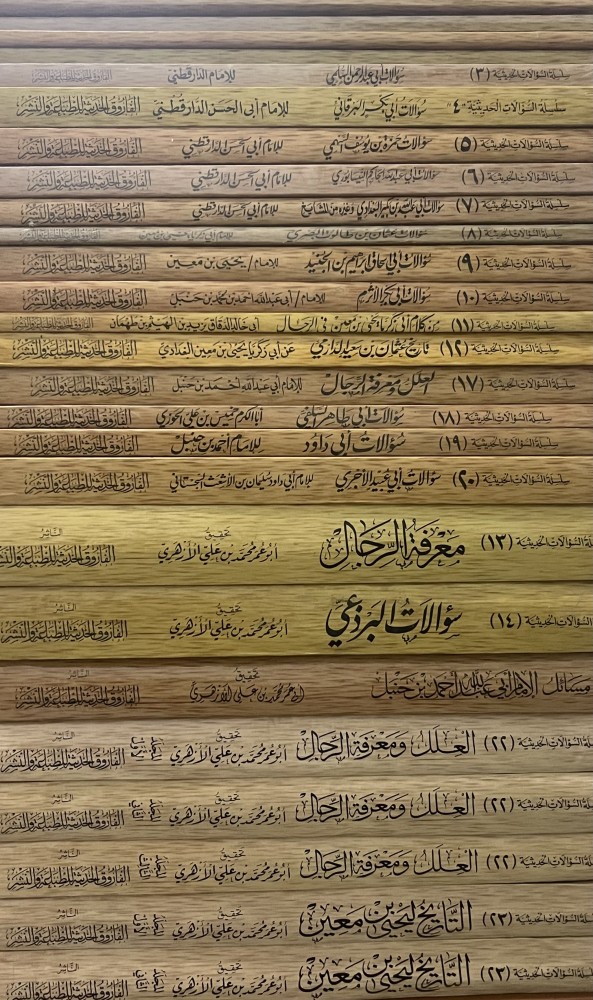 سلسلة السؤالات الحديثية (٣) سؤالات أبي عبد الرحمن السلمي للإمام الدارقطني الفاروق الحديثة للطباعة والنشر
سلسلة السؤالات الحديثية "٤" سؤالات أبي بكر البرقاني للإمام أبي الحسن الدارقطني الفاروق الحديثة للطباعة والنشر
سلسلة السؤالات الحديثية (٥) سؤالات حمزة بن يوسف السهمي للإمام أبي الحسن الدارقطني الفاروق الحديثة للطباعة والنشر
سلسلة السؤالات الحديثية (٦) سؤالات أبي عبد الله الحاكم النيسابوري للإمام أبي الحسن الدارقطني الفاروق الحديثة للطباعة والنشر
سلسلة السؤالات الحديثية (٧) سؤالات أبي عبد الله بن بكير البغدادي وغيره من المشايخ للإمام أبي الحسن الدارقطني الفاروق الحديثة للطباعة والنشر
سلسلة السؤالات الحديثية (٨) سؤالات عثمان بن طالوت البصري للإمام أبي زكريا يحيى بن معين الفاروق الحديثة للطباعة والنشر
سلسلة السؤالات الحديثية (٩) سؤالات أبي إسحاق إبراهيم بن الجنيد للإمام/ يحيى بن معين الفاروق الحديثة للطباعة والنشر
سلسلة السؤالات الحديثية (١٠) سؤالات أبي بكر الأثرم للإمام/ أبي عبد الله أحمد بن محمد بن حنبل الفاروق الحديثة للطباعة والنشر
سلسلة السؤالات الحديثية (١١) من كلام أبي زكريا يحيى بن معين في الرجال أبي خالد الدقاق يزيد بن الهيثم بن طهمان الفاروق الحديثة للطباعة والنشر
سلسلة السؤالات الحديثية (١٢) تاريخ عثمان بن سعيد الدارمي عن أبي زكريا يحيى بن معين البغدادي الفاروق الحديثة للطباعة والنشر
سلسلة السؤالات الحديثية (١٧) العلل ومعرفة الرجال للإمام أبي عبد الله أحمد بن حنبل الفاروق الحديثة للطباعة والنشر
سلسلة السؤالات الحديثية (١٨) سؤالات أبي طاهر السلفي أبا الكرم خميس بن علي الحوزي الفاروق الحديثة للطباعة والنشر
سلسلة السؤالات الحديثية (١٩) سؤالات أبي داود للإمام أحمد بن حنبل الفاروق الحديثة للطباعة والنشر
سلسلة السؤالات الحديثية (٢٠) سؤالات أبي عبيد الآجري للإمام أبي داود سليمان بن الأشعث السجستاني الفاروق الحديثة للطباعة والنشر
سلسلة السؤالات الحديثية (١٣) معرفة الرجال تحقيق أبو عمر محمد بن علي الأزهري الناشر الفاروق الحديثة للطباعة والنشر
سلسلة السؤالات الحديثية (١٤) سؤالات البرذعي تحقيق أبو عمر محمد بن علي الأزهري الناشر الفاروق الحديثة للطباعة والنشر
مسائل الإمام أبي عبد الله أحمد بن حنبل تحقيق أبي عمر محمد بن علي الأزهري الناشر الفاروق الحديثة للطباعة والنشر
سلسلة السؤالات الحديثية (٢٢) العلل ومعرفة الرجال تحقيق أبو عمر محمد بن علي الأزهري الناشر الفاروق الحديثة للطباعة والنشر
سلسلة السؤالات الحديثية (٢٢) العلل ومعرفة الرجال تحقيق أبو عمر محمد بن علي الأزهري الناشر الفاروق الحديثة للطباعة والنشر
سلسلة السؤالات الحديثية (٢٢) العلل ومعرفة الرجال تحقيق أبو عمر محمد بن علي الأزهري الناشر الفاروق الحديثة للطباعة والنشر
سلسلة السؤالات الحديثية (٢٣) التاريخ ليحيى بن معين تحقيق أبو عمر محمد بن علي الأزهري الناشر الفاروق الحديثة للطباعة والنشر
سلسلة السؤالات الحديثية (٢٣) التاريخ ليحيى بن معين تحقيق أبو عمر محمد بن علي الأزهري الناشر الفاروق الحديثة للطباعة والنشر